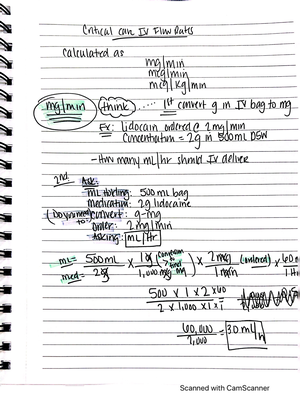 Critical care IV Flow Rates
Calculated as
mg/min
mcg/min
mcg/kg/min
mg/min think ..... 1st convert g in IV bag to mg
Ex: Lidocain ordered @ 2mg/min
Concentration = 2g in 500mL D5W
- How many mL/hr should IV deliver
2nd Ask:
mL holding: 500mL bag
medication: 2g lidocaine
(Do you need to:) convert: g-mg
order: 2mg/min
asking: mL/Hr
mL = 500mL x 1g (conversion to find mg) x 2mg (ordered) x 60 m
med 2g 1,000mg 1min 1Hr
500 x 1 x 2 x 60 =
2 x 1,000 x 1 x 1
60,000 = 30 mL/h
2,000
Scanned with CamScanner